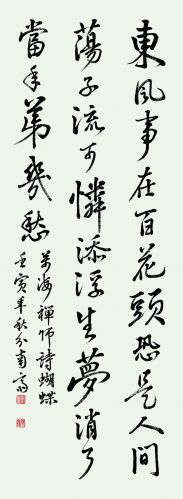 東風事在百花頭恐是人間
蕩子流可憐添浮生夢消了
當年弟幾愁
萬海禪師詩蝴蝶
壬寅年秋分南